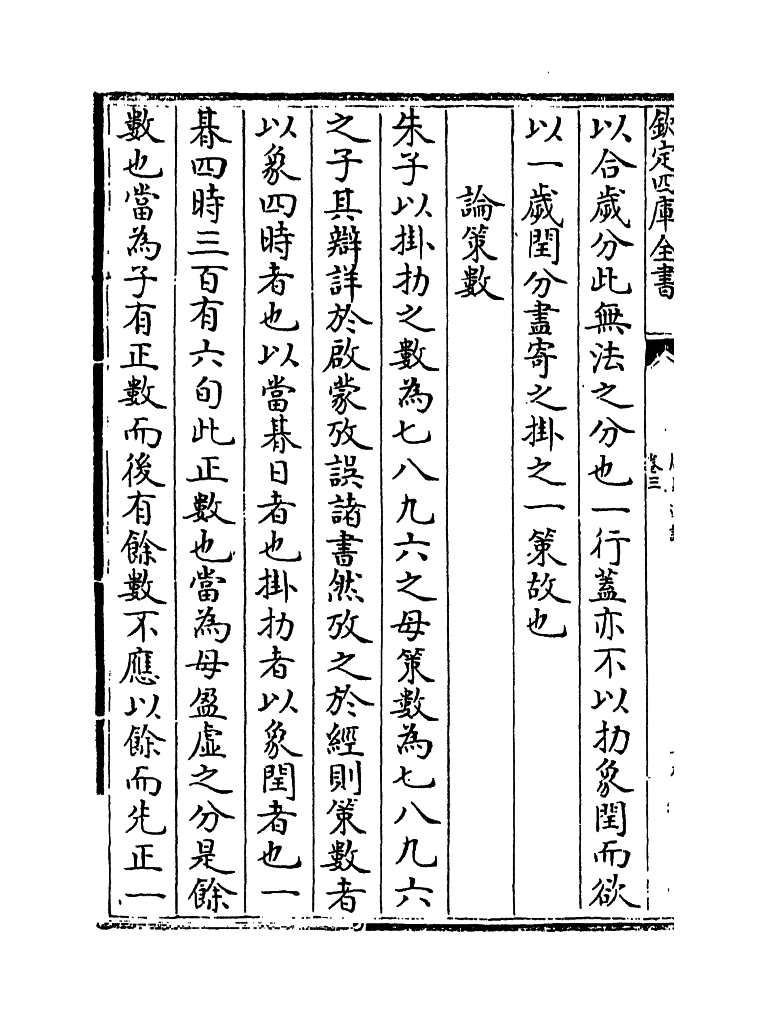 欽定四庫全書
卷三
以合歲分此無法之分也一行蓋亦不以扐象閏而欲
以一歲閏分盡寄之掛之一策故也
論策數
朱子以掛扐之數為七八九六之母策數為七八九六
之子其辯詳於啟蒙攷誤諸書然攷之於經則策數者
以象四時者也以當朞日者也掛扐者以象閏者也一
朞四時三百有六旬此正數也當為母盈虛之分是餘
數也當為子有正數而後有餘數不應以餘而先正一